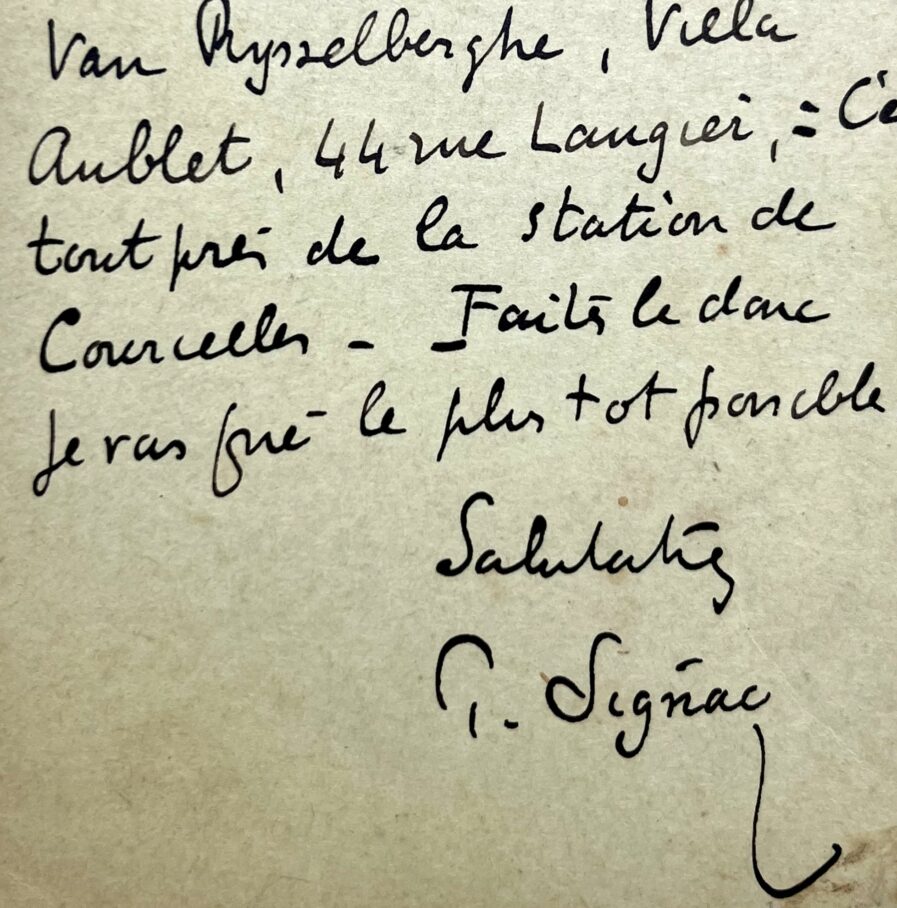 Van Rysselberghe, Villa
Aublet, 44 rue Laugier, = C'e
tout près de la station de
Courcelles - Faites le donc
je vas prie le plus tot possible
Salutations
P. Signac